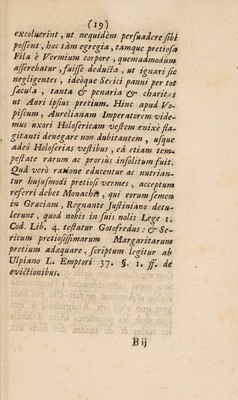 (19)
excoluerint, ut nequidèm persuadere sibi
possent, hæc tàm egregia, tamque pretiosa
Fila è Vermium corpore, quemadmodum
asserebatur, fuisse deducta, ut ignari sic
negligentes, ideòque Serici panni per tot
sæcula, tanta & penaria & charitas
ut Auri ipsius pretium. Hinc apud Vo-
piscum, Aurelianam Imperatorem vide-
mus uxori Holosericam vestem enixè fla-
gitanti denegare non dubitantem, usque
adeò Holosericas vestibus, eâ etiam tem-
pestate rarum ac prorsùs insolitum fuit.
Quâ verò ratione educentur ac nutrian-
tur hujusmodi pretiosi vermes, acceptum
referri debet Monachis, qui eorum semen
in Græciam, Regnante Justiniano detu-
lerunt, quod nobis in suis nolis Lege 1.
Cod. Lib. 4. testatur Gotofredus: & Se-
ricum pretiosissimarum Margaritarum
pretium adæquare, scriptum legitur ab
Ulpiano L. Emptori 37. §. 1. ff. de
evictionibus.
B ij